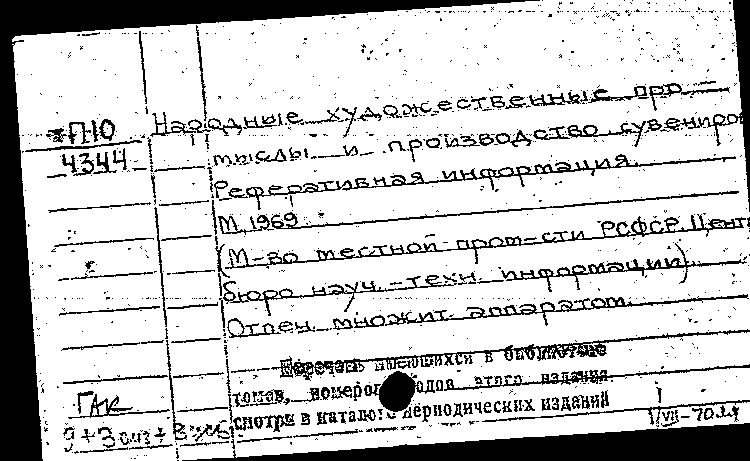 П10
4344
Народные художественные про-
мыслы и производство сувениров
Реферативная информация.
М, 1969
(М-во местной пром-сти РСФСР. Центр
бюро науч.-техн. информации).
Отпеч. множит. аппаратом.
Перечень имеющихся в библиотеке
томов, номеров годов этого издания
смотри в каталоге периодических изданий
ГАК
1/VII-70